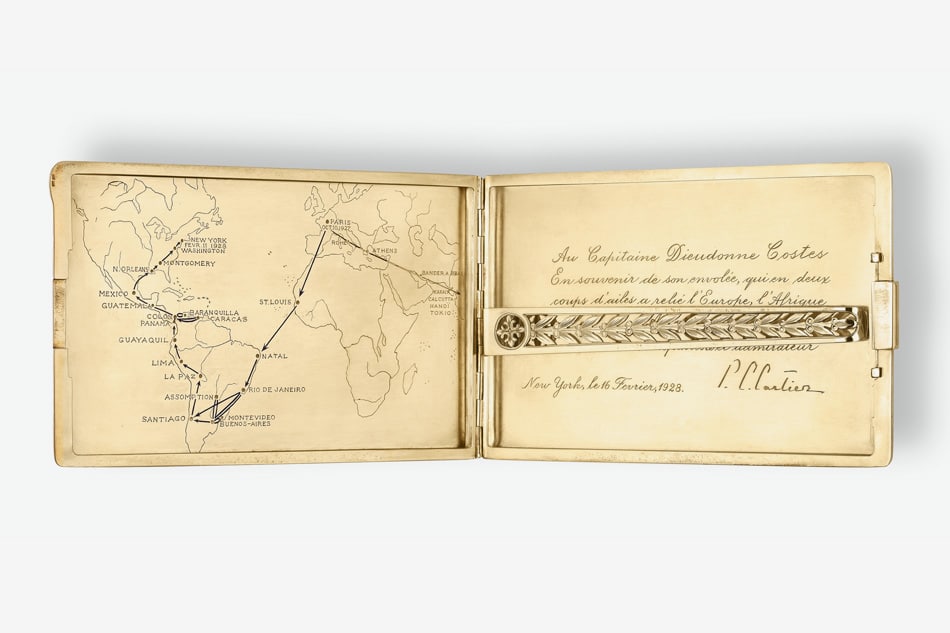 NEW YORK
FEVR. 11 1928
WASHINGTON
MONTGOMERY
N. ORLEANS
MEXICO
GUATEMALA
COLON
PANAMA
BARANQUILLA
CARACAS
GUAYAQUIL
LIMA
LA PAZ
ASSOMPTION
SANTIAGO
MONTEVIDEO
BUENOS-AIRES
RIO DE JANEIRO
NATAL
ST. LOUIS
PARIS
OCT. 10, 1927
ROME
ATHENS
CALCUTTA
HANOI
TOKIO
Au Capitaine Dieudonne Costes
En souvenir de son envolée, qui en deux
coups d'ailes a relié l'Europe, l'Afrique
admirateur
New York, le 16 Fevrier, 1928.
P. C. Cartier